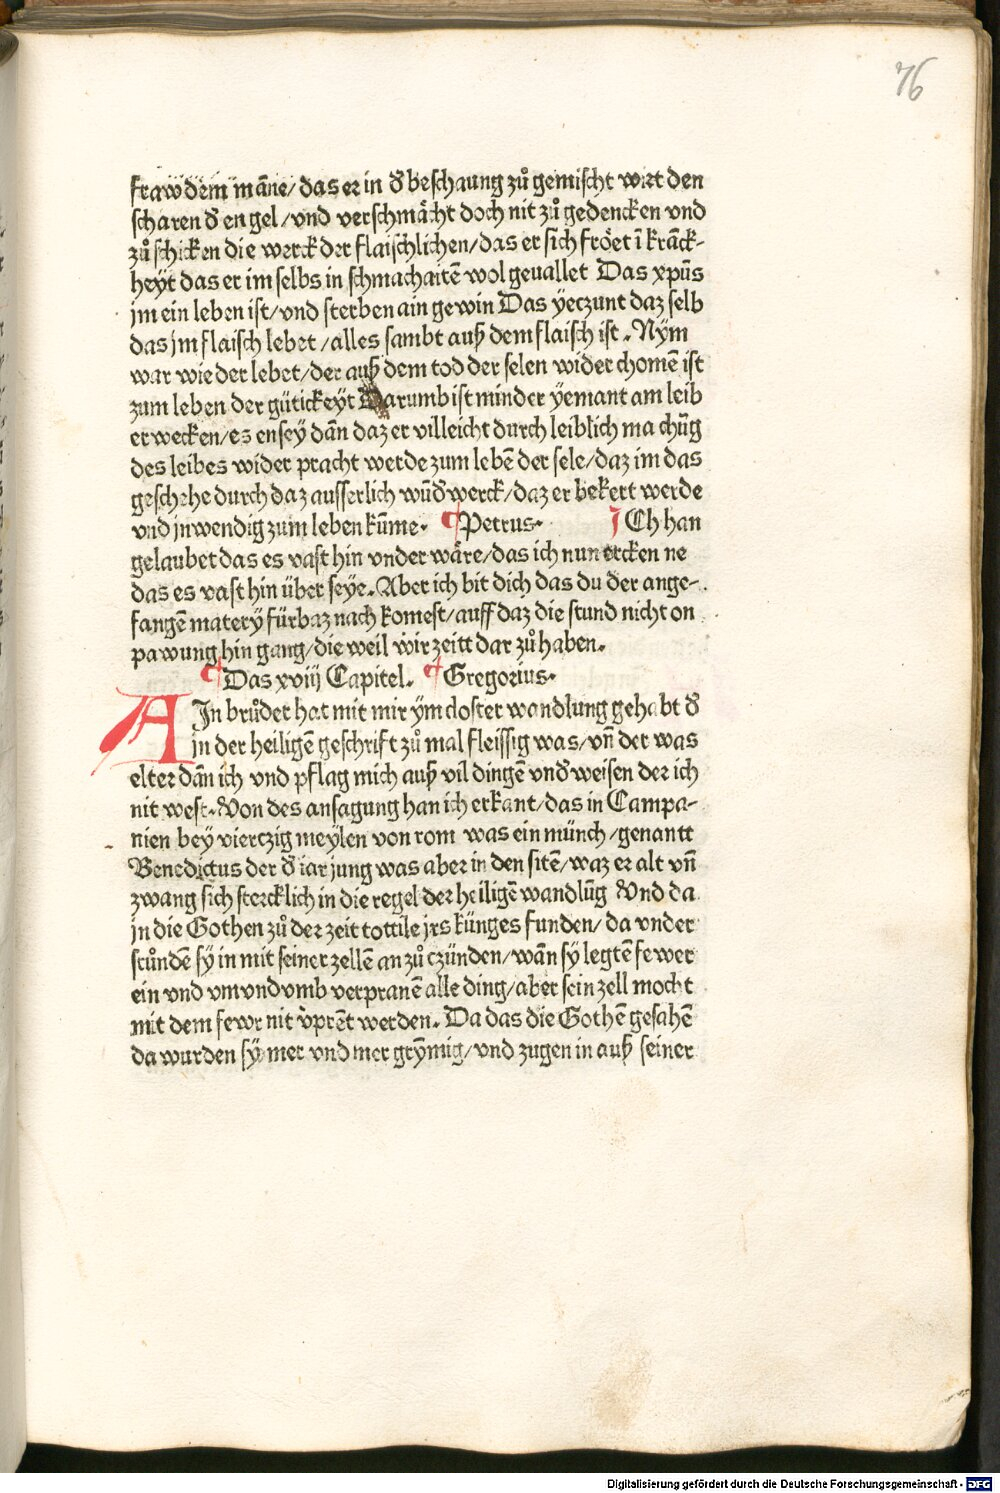 76
fraw dem māne/ das er in d̄ beschaung zů gemischt wirt den
scharen d̄ engel/vnd verschmächt doch nit zů gedencken vnd
zů schicken die werck der flaischlichen/das er sich fröet ī krāck-
heyt das er im selbs in schmachaitē wol geuallet Das xp̄us
jm ein leben ist/vnd sterben ain gewin Das yeczunt daz selb
das jm flaisch lebet/alles sambt auß dem flaisch ist. Nÿm
war wie der lebet/der auß dem tod der selen wider chomē ist
zum leben der gütickeyt Darumb ist minder yemant am leib
erwecken/es en sey dān daz er villeicht durch leiblich machūg
des leibes wider pracht werde zum lebē der sele/daz im das
geschehe durch daz ausserlich wūd̄werck/daz er bekert werde
vnd jnwendig zum leben kūme. ¶ Petrus. ICh han
gelaubet das es vast hin vnder wäre/das ich nun ercken ne
das es vast hin über seye. Aber ich bit dich das du der ange-
fangē matery fürbaz nach komest/auff daz die stund nicht on
pawung hin gang/die weil wir zeitt dar zů haben.
¶ Das xviij Capitel. ¶ Gregorius.
AIn brůder hat mit mir ym closter wandlung gehabt d̄
in der heiligē geschrift zů mal fleissig was/vn̄ der was
elter dān ich vnd pflag mich auß vil dingē vnd̄weisen der ich
nit west. Von des ansagung han ich erkant/das in Campa-
nien bey vierczig meylen von rom was ein münch/genantt
Benedictus der d̄ iar jung was aber in den sitē/waz er alt vn̄
zwang sich stercklich in die regel der heiligē wandlūg Vnd da
jn die Gothen zů der zeit tottile jrs künges funden/ da vnder
stůndē sy in mit seiner zellē an zů czünden/wān sy legtē fewer
ein vnd vmvndvmb verpranē alle ding/aber sein zell mocht
mit dem fewr nit v̄prēt werden. Da das die Gothē gesahē
da wurden sy mer vnd mer grÿmig/vnd zugen in auß seiner
Digitalisierung gefördert durch die Deutsche Forschungsgemeinschaft - DFG